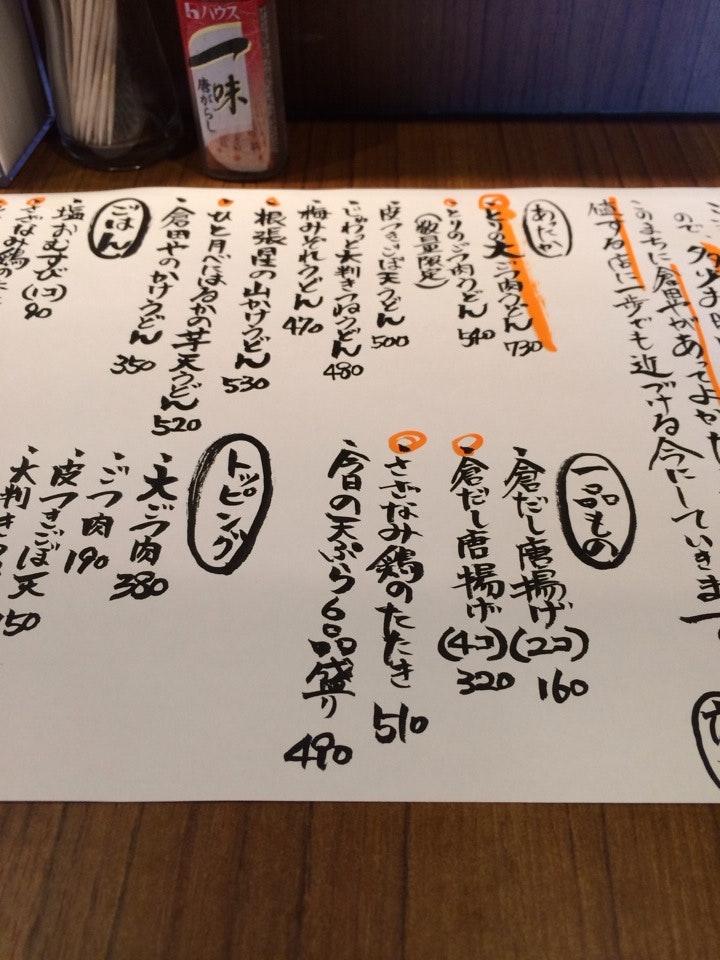 ハウス
一味
唐がらし
ので
このまちに倉田やがあってよかった
値する店に一歩でも近づける今にしていきます
あたたか
とりの大ごつ肉うどん 730
とりのごつ肉うどん 540
(数量限定)
皮つきごぼ天うどん 500
じゅわっと大判きつねうどん 480
梅みぞれうどん 470
根張星の山かけうどん 530
ひと月べにはるかの芋天うどん 520
倉田やのかけうどん 350
ごはん
塩おむすび(1コ) 90
さざなみ鶏の
一品もの
倉だし唐揚げ(2コ) 160
倉だし唐揚げ(4コ) 320
さざなみ鶏のたたき 510
今日の天ぷら6品盛り 490
トッピング
大ごつ肉 380
ごつ肉 190
皮つきごぼ天 150
大判き